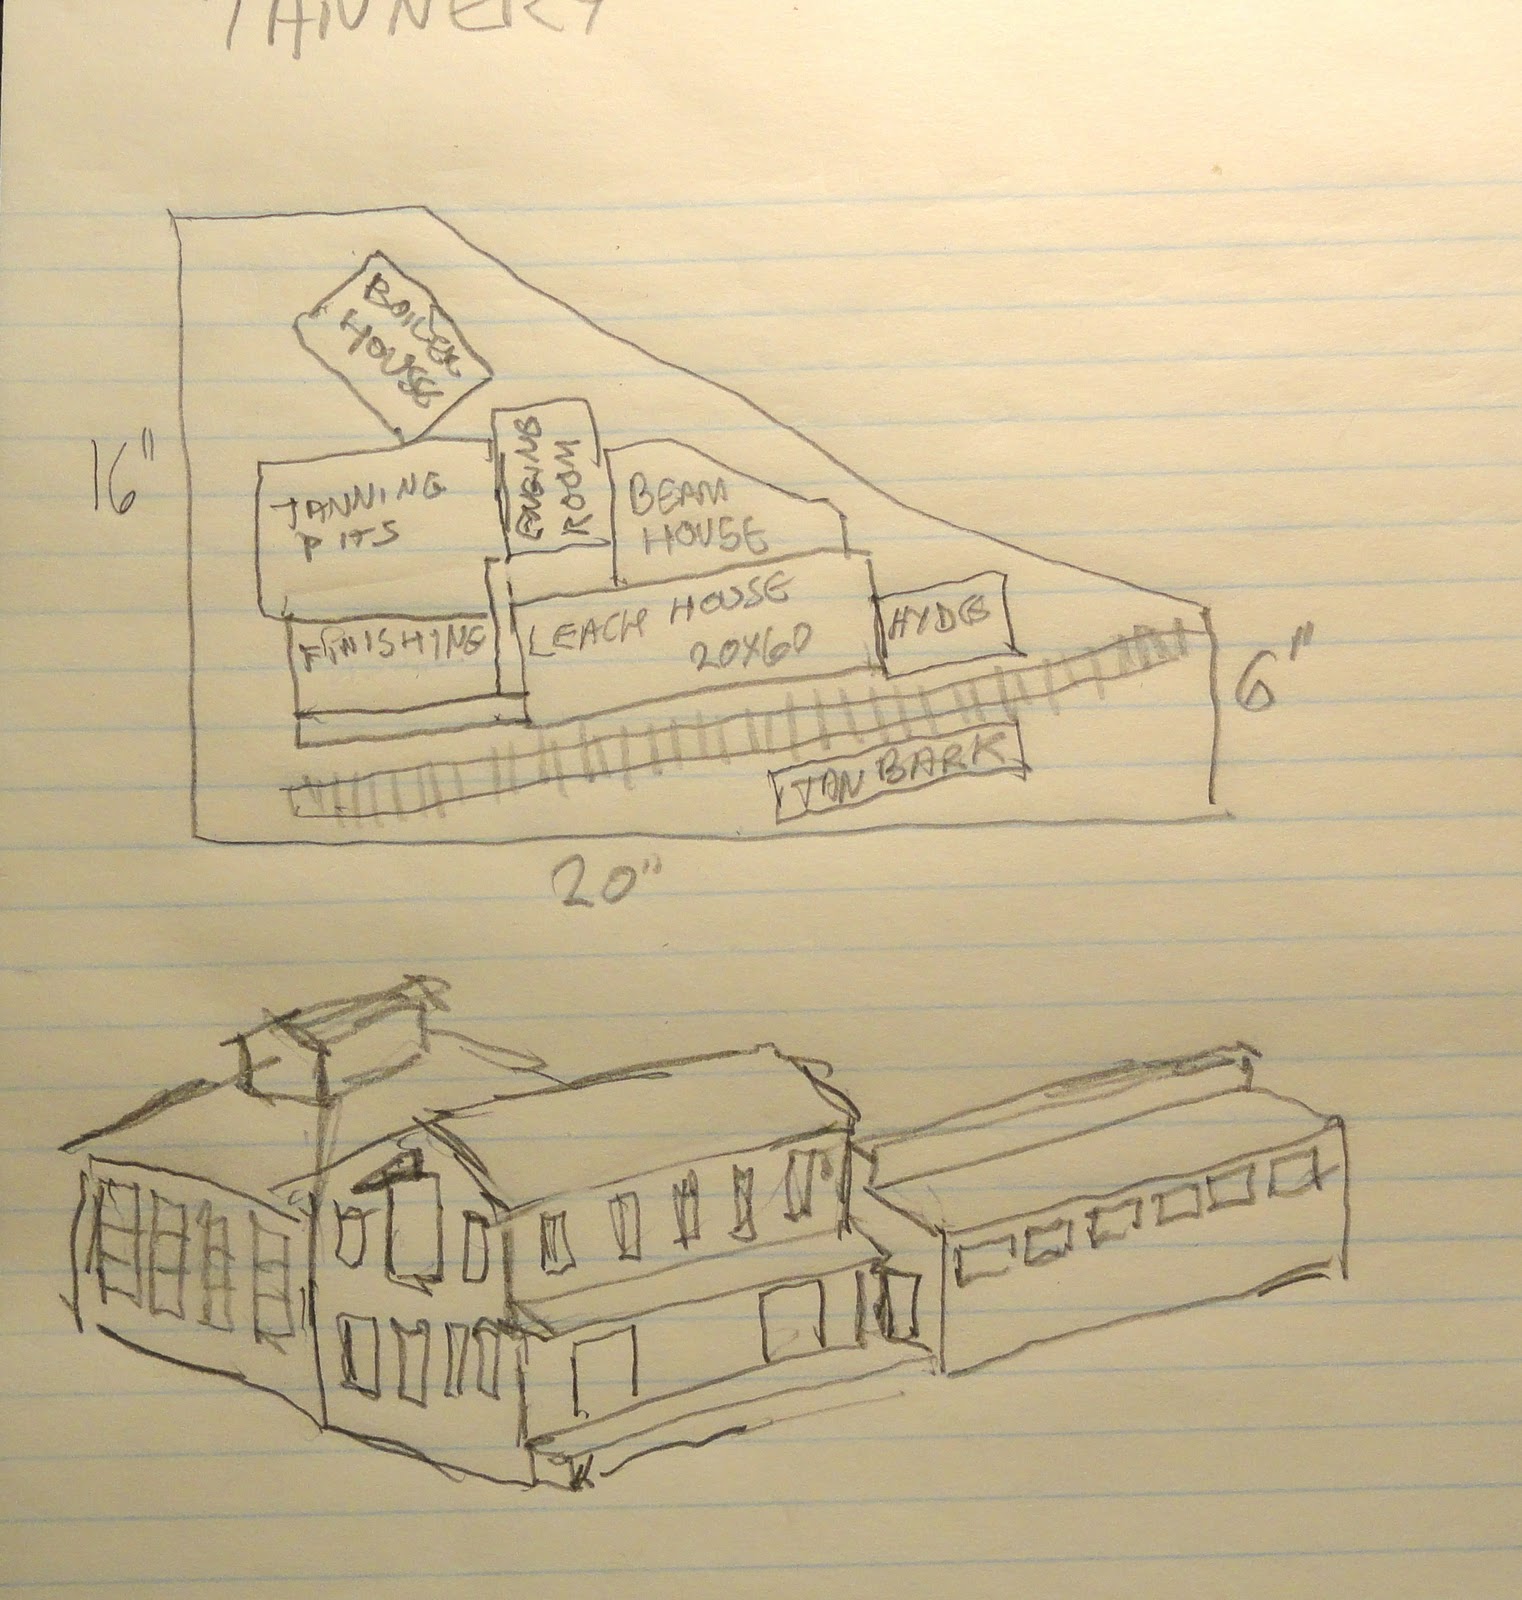 TANNERY
BOILER
HOUSE
16"
TANNING
PITS
ENGINE
ROOM
BEAM
HOUSE
FINISHING
LEACH HOUSE
20X60
HYDES
6"
TAN BARK
20"